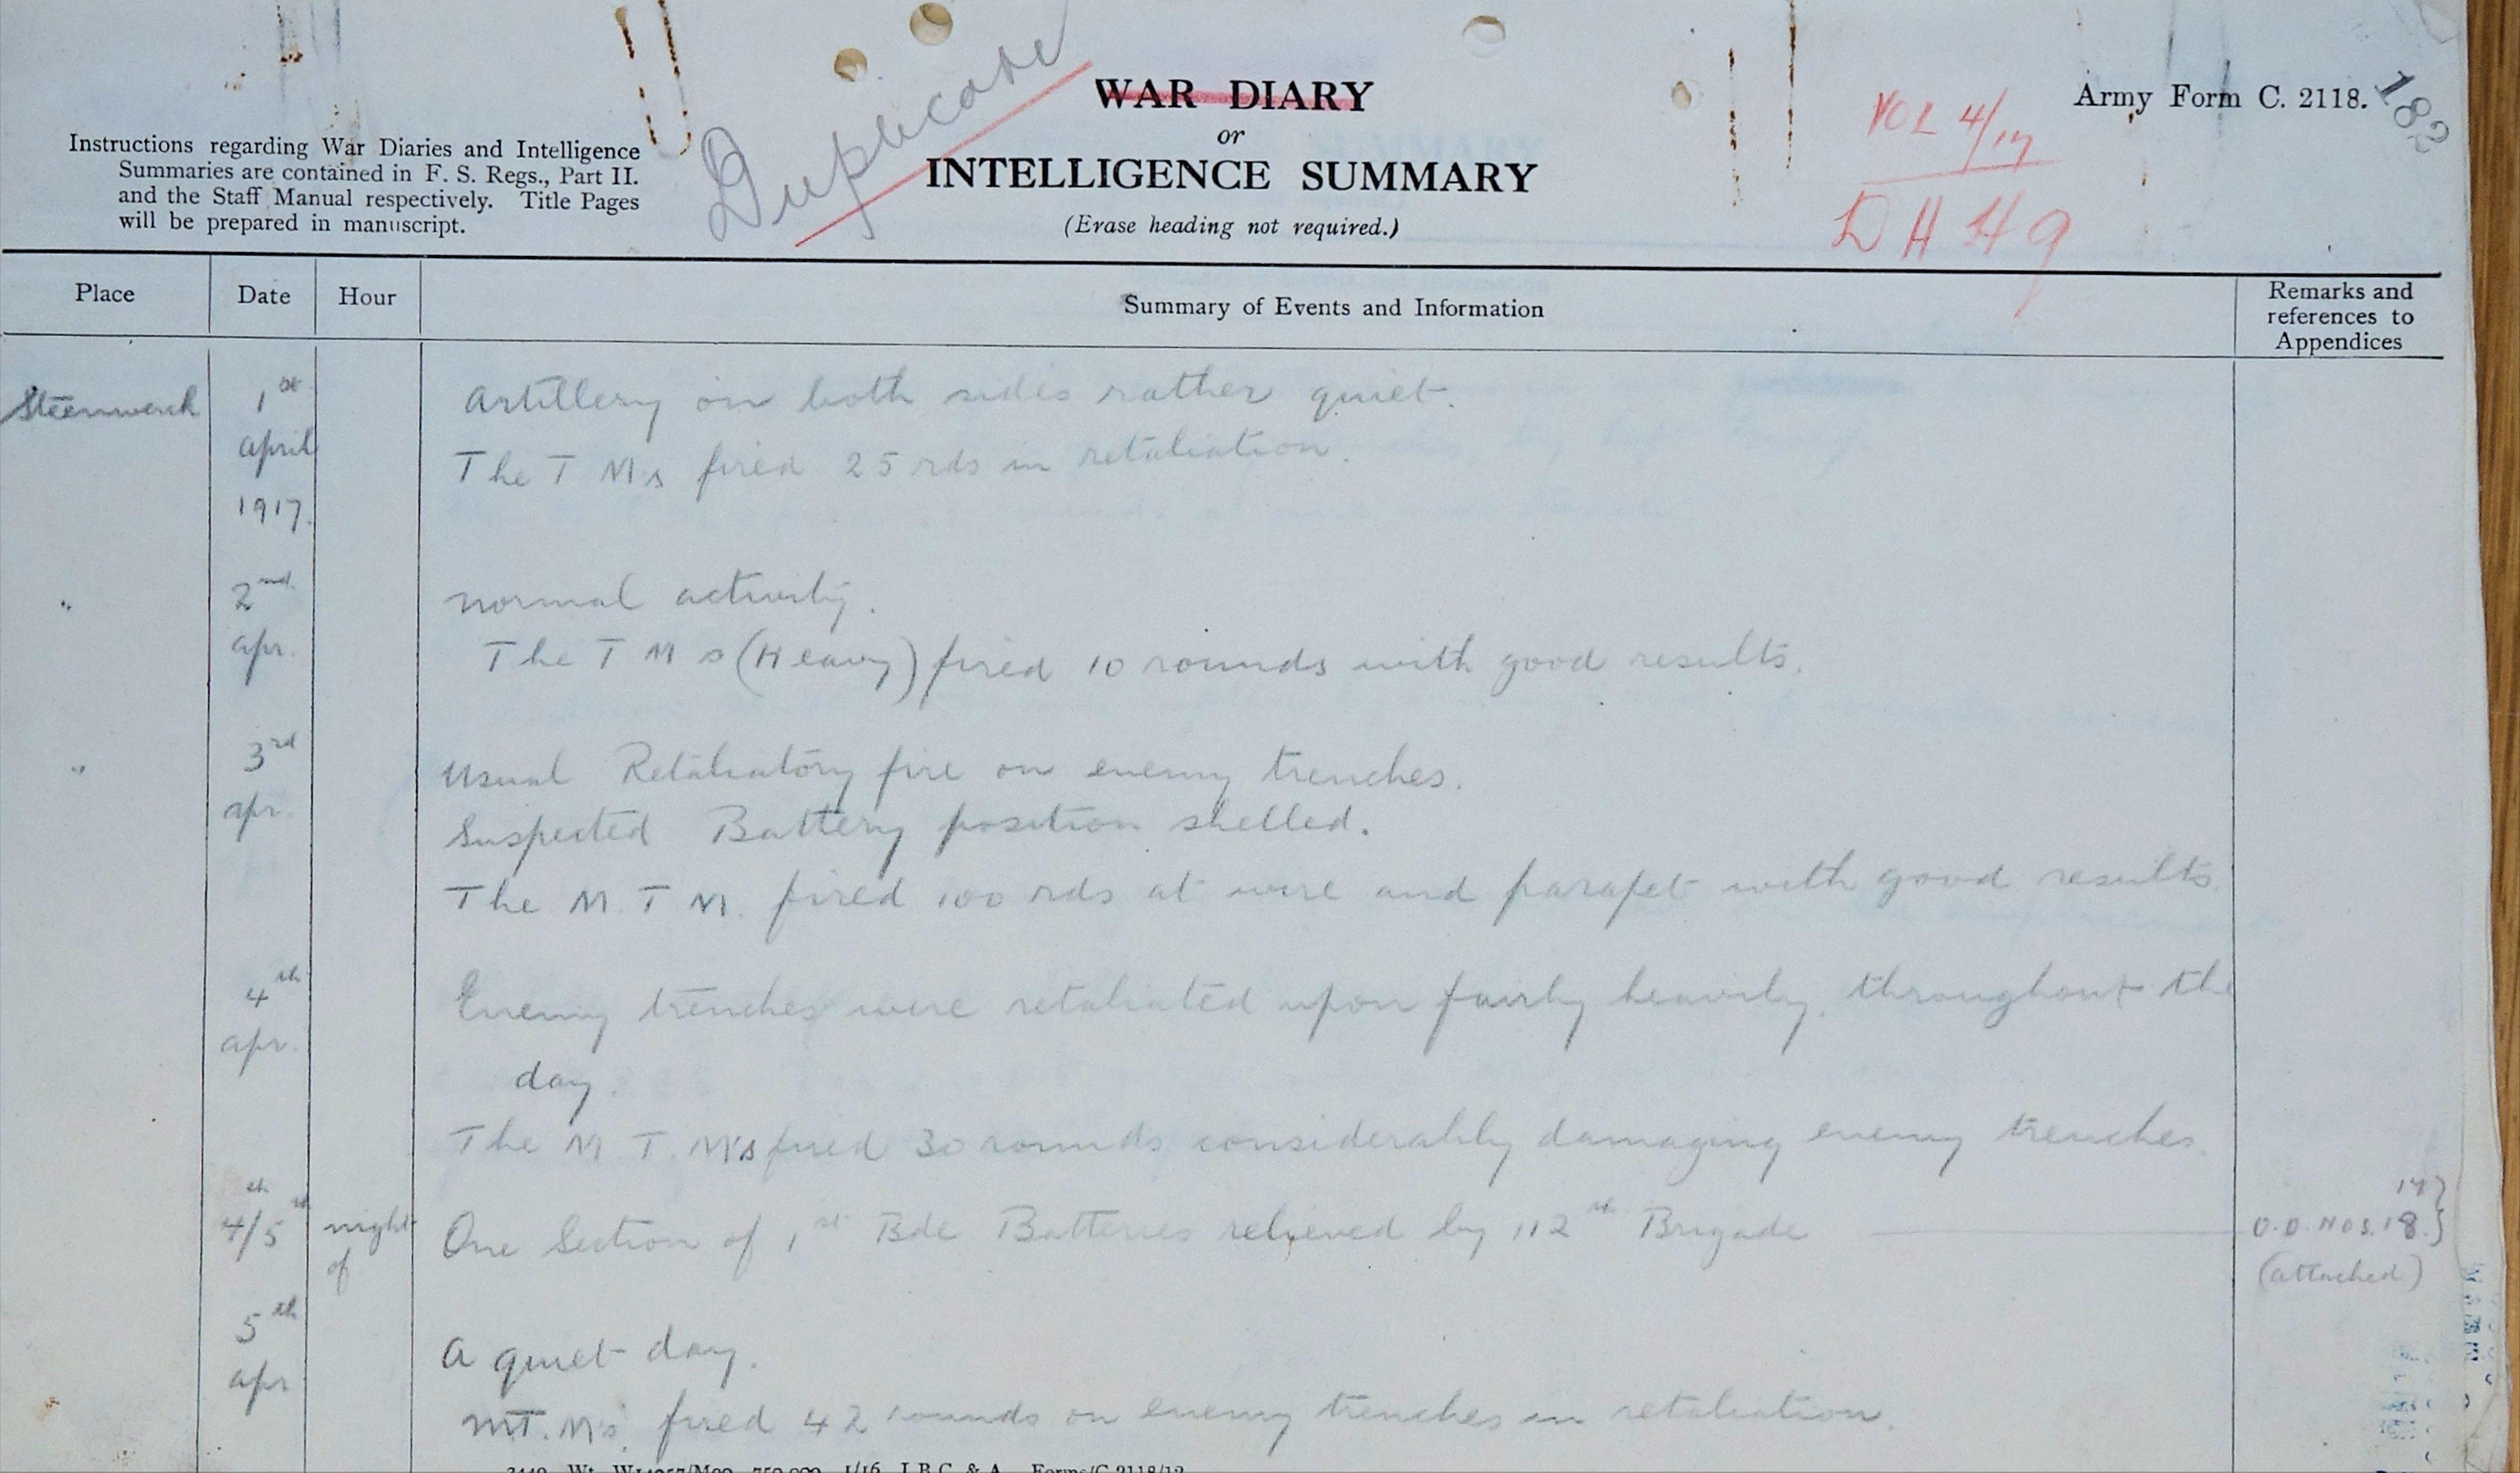 Duplicate
WAR DIARY
or
INTELLIGENCE SUMMARY
(Erase heading not required.)
Army Form C. 2118.
182
VOL 4/17
Instructions regarding War Diaries and Intelligence
Summaries are contained in F. S. Regs., Part II.
and the Staff Manual respectively. Title Pages
will be prepared in manuscript.
Place Date Hour Summary of Events and Information Remarks and
references to
Appendices
Steenwerck 1st Artillery on both sides rather quiet.
april The T Ms fired 25 rds in retaliation.
1917.
" 2nd normal activity.
apr. The T M s (Heavy) fired 10 rounds with good results.
" 3rd Usual Retaliatory fire on enemy trenches.
apr. Suspected Battery position shelled.
The M. T M. fired 100 rds at wire and parapet with good results.
4th Enemy trenches were retaliated upon fairly heavily, throughout the
apr. day.
The M. T. M's fired 30 rounds considerably damaging enemy trenches.
4th/5th night One Section of 1st Bde Batteries relieved by 112th Brigade 17}
of O.O. NOS. 18.}
(attached)
5th A quiet day.
apr MT. M's. fired 42 rounds on enemy trenches in retaliation.